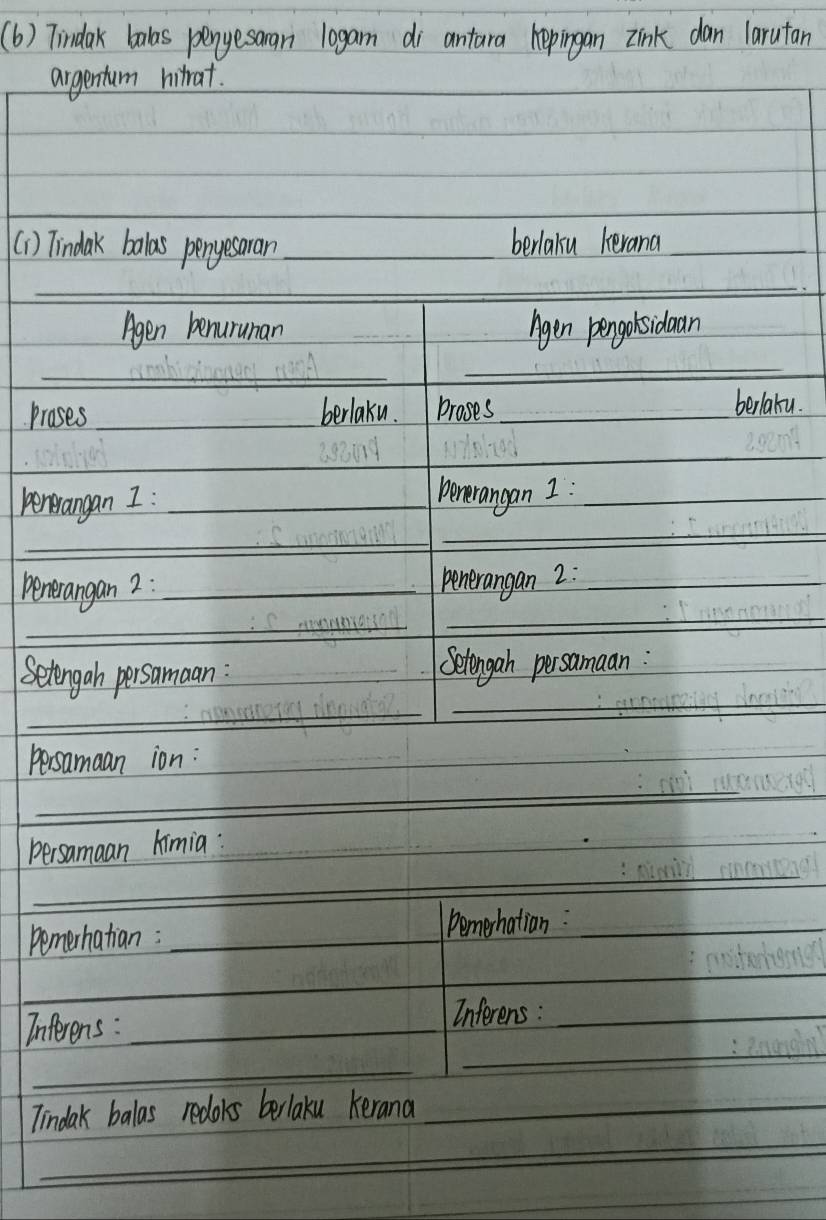 (b) Tindak balas penyesaran logam di antara kepingan zink dan larutan
argentum nitrat.
(i) Tindak balas penyesaran ____ berlaku kerana ____
Agen penurunan
Agen pengoksidaan
Proses ____ berlaku.
Proses ____ berlaku.
Penerangan 1: ____
Penerangan 1: ____
Penerangan 2: ____
Penerangan 2: ____
Setengah persamaan:
Setengah persamaan:
Persamaan ion:
Persamaan kimia:
Pemerhatian: ____
Pemerhatian: ____
Inferens: ____
Inferens: ____
Tindak balas redoks berlaku kerana ____